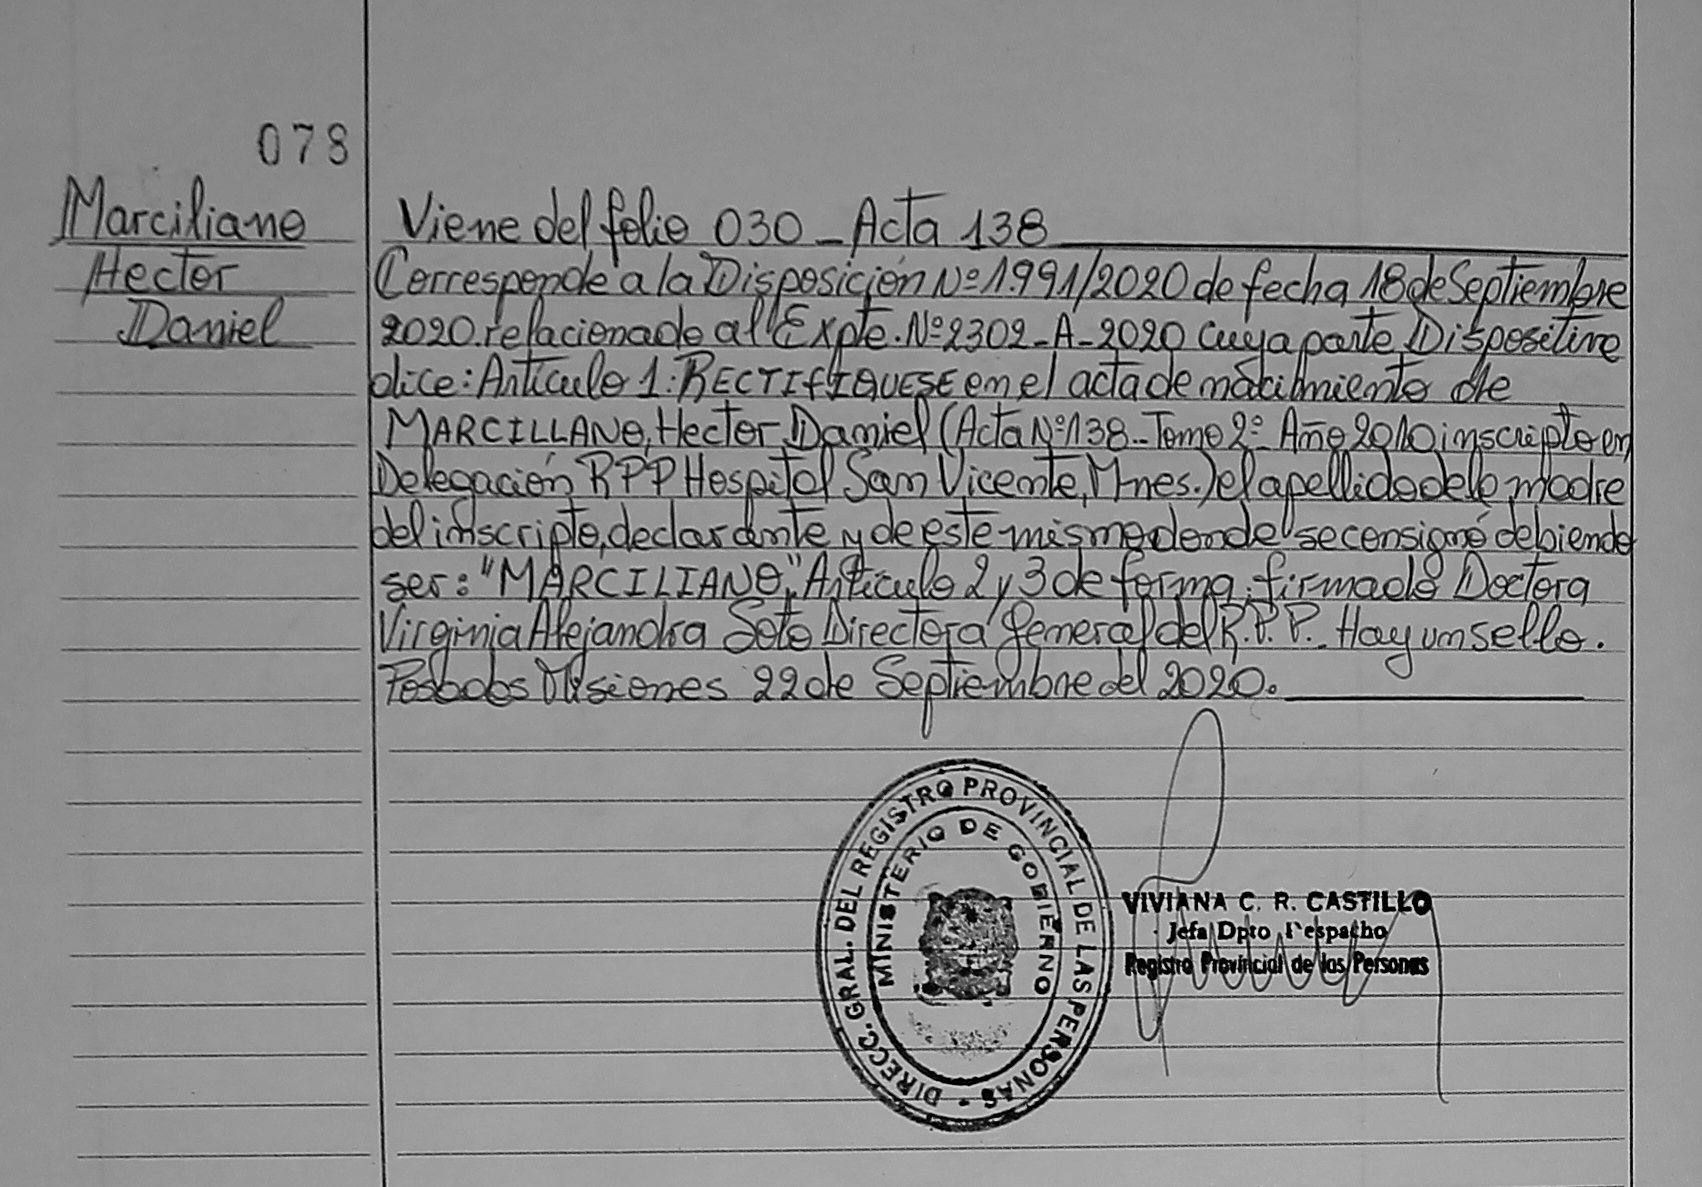 078
Marciliano
Hector
Daniel
Viene del folio 030 - Acta 138
Corresponde a la Disposición Nº 1.991/2020 de fecha 18 de Septiembre
2020 relacionado al Expte. Nº 2302-A-2020 cuya parte Dispositiva
dice: Artículo 1: RECTIFIQUESE en el acta de nacimiento de
MARCILLANO, Hector Daniel (Acta Nº 138 - Tomo 2º Año 2010 inscripto en
Delegación RPP Hospital San Vicente, Mnes.) el apellido de la madre
del inscripto, declarante y de este mismo donde se consignó debiendo
ser: "MARCILIANO", Artículo 2 y 3 de forma, firmado Doctora
Virginia Alejandra Soto Directora General del R.P.P. Hay un sello.
Posadas Misiones 22 de Septiembre del 2020.
DIRECC. GRAL. DEL REGISTRO PROVINCIAL DE LAS PERSONAS -
MINISTERIO DE GOBIERNO
VIVIANA C. R. CASTILLO
Jefa Dpto Despacho
Registro Provincial de las Personas